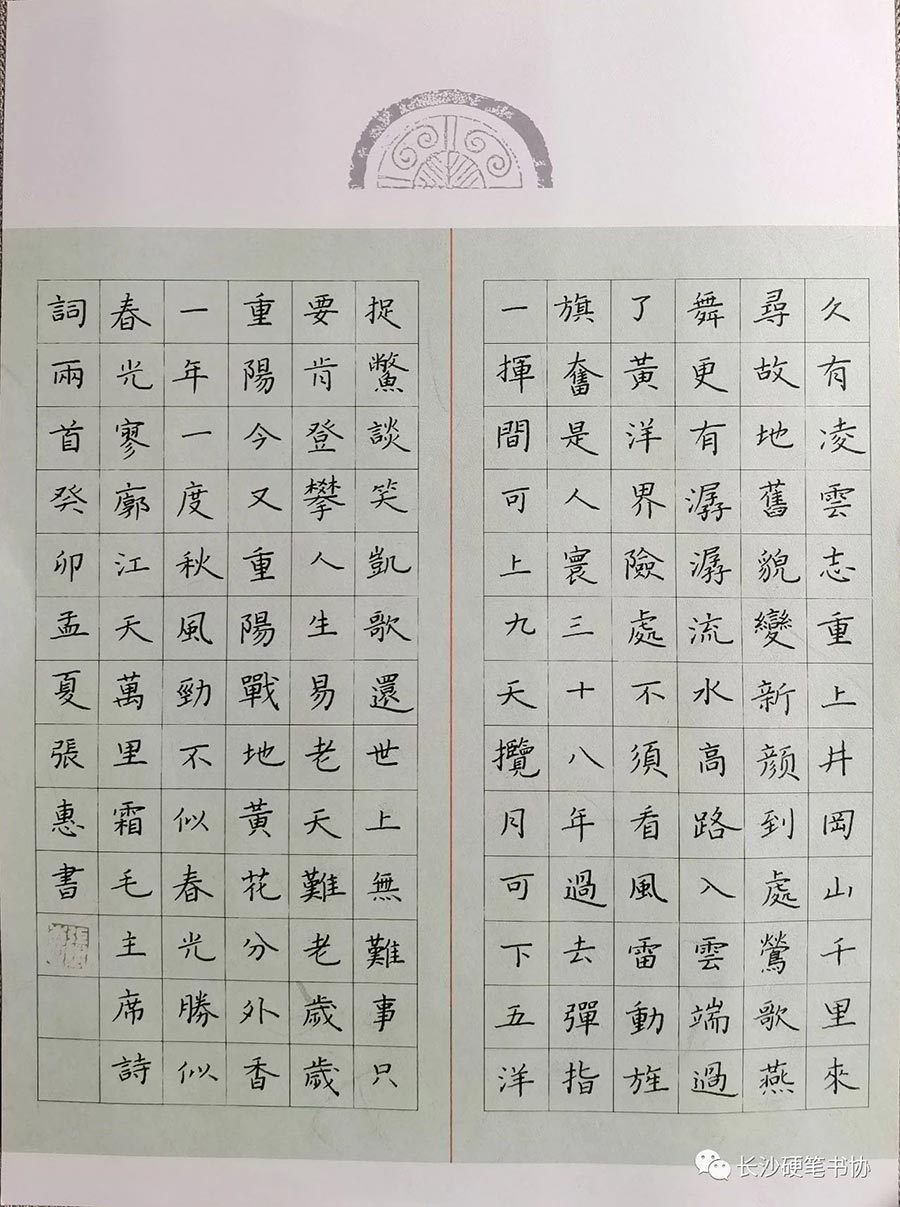 久有凌雲志重上井岡山千里來
尋故地舊貌變新顔到處鶯歌燕
舞更有潺潺流水高路入雲端過
了黃洋界險處不須看風雷動旌
旗奮是人寰三十八年過去彈指
一揮間可上九天攬月可下五洋
捉鱉談笑凱歌還世上無難事只
要肯登攀人生易老天難老歲歲
重陽今又重陽戰地黃花分外香
一年一度秋風勁不似春光勝似
春光寥廓江天萬里霜毛主席詩
詞兩首癸卯孟夏張惠書
长沙硬笔书协